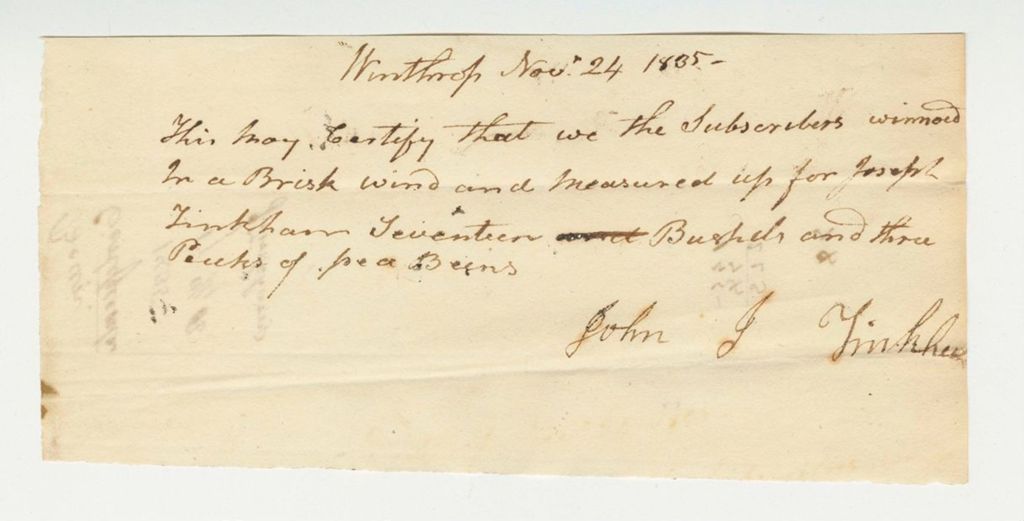 Winthrop Nov.r 24 1835-
This may Certify that we the Subscribers winnoed
In a Brisk wind and measured up for Joseph
Tinkham Seventeen and Bushels and three
Pecks of pea Beens
John J Tinkham